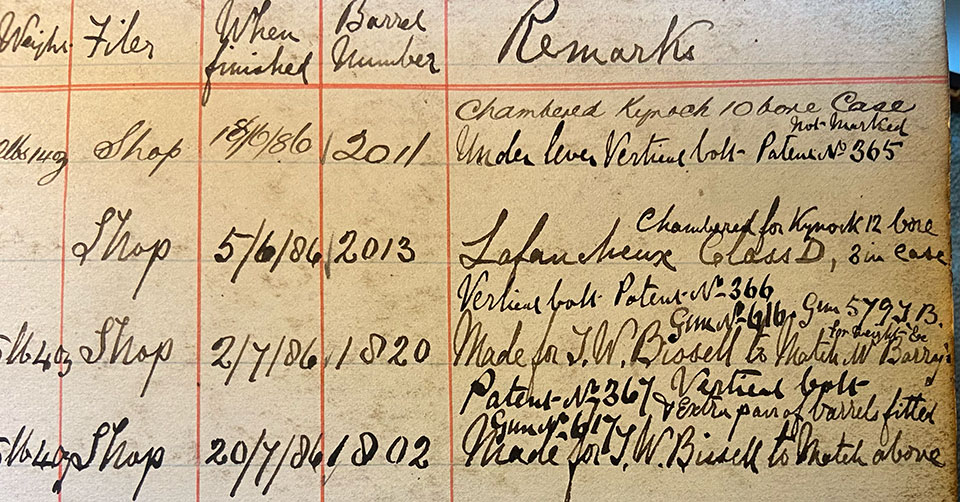 Weight Filer When finished Barrel Number Remarks
Chambered Kynoch 10 bore Case
Not Marked
14 Shop 18/6/86 2011 Under lever Vertical bolt Patent No 365
Chambered for Kynoch 12 bore
Shop 5/6/86 2013 Lafancheux Class D, 3 in case
Vertical bolt Patent No 366
Gun No 616. Gun 5797 B.
for weight &c
Shop 2/7/86 1820 Made for T. W. Bissell to Match Mr Barray's
Patent No 367 Vertical bolt
Gun No 617 & Extra pair of barrels fitted
Shop 20/7/86 1802 Made for T. W. Bissell to Match above